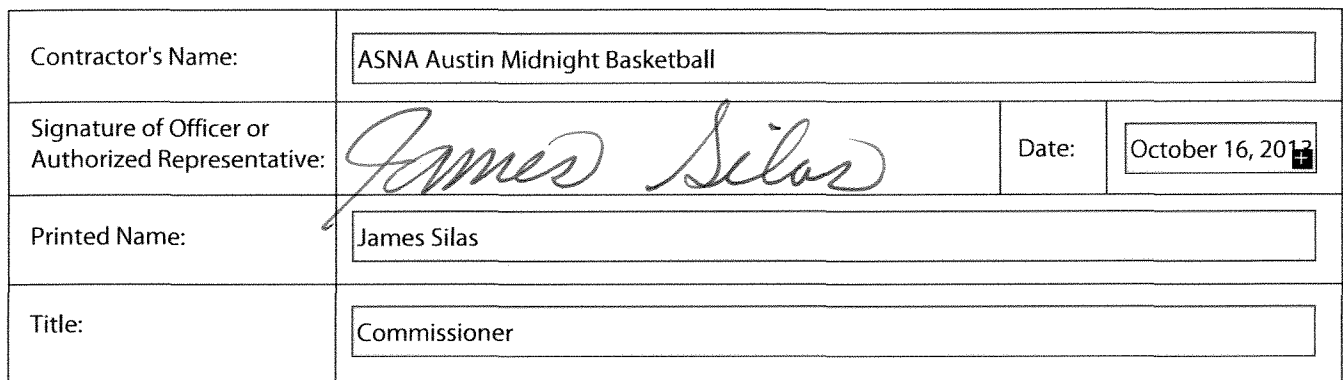 Contractor's Name:
ASNA Austin Midnight Basketball
Signature of Officer or
Authorized Representative:
James Silas
Date:
October 16, 2013
Printed Name:
James Silas
Title:
Commissioner